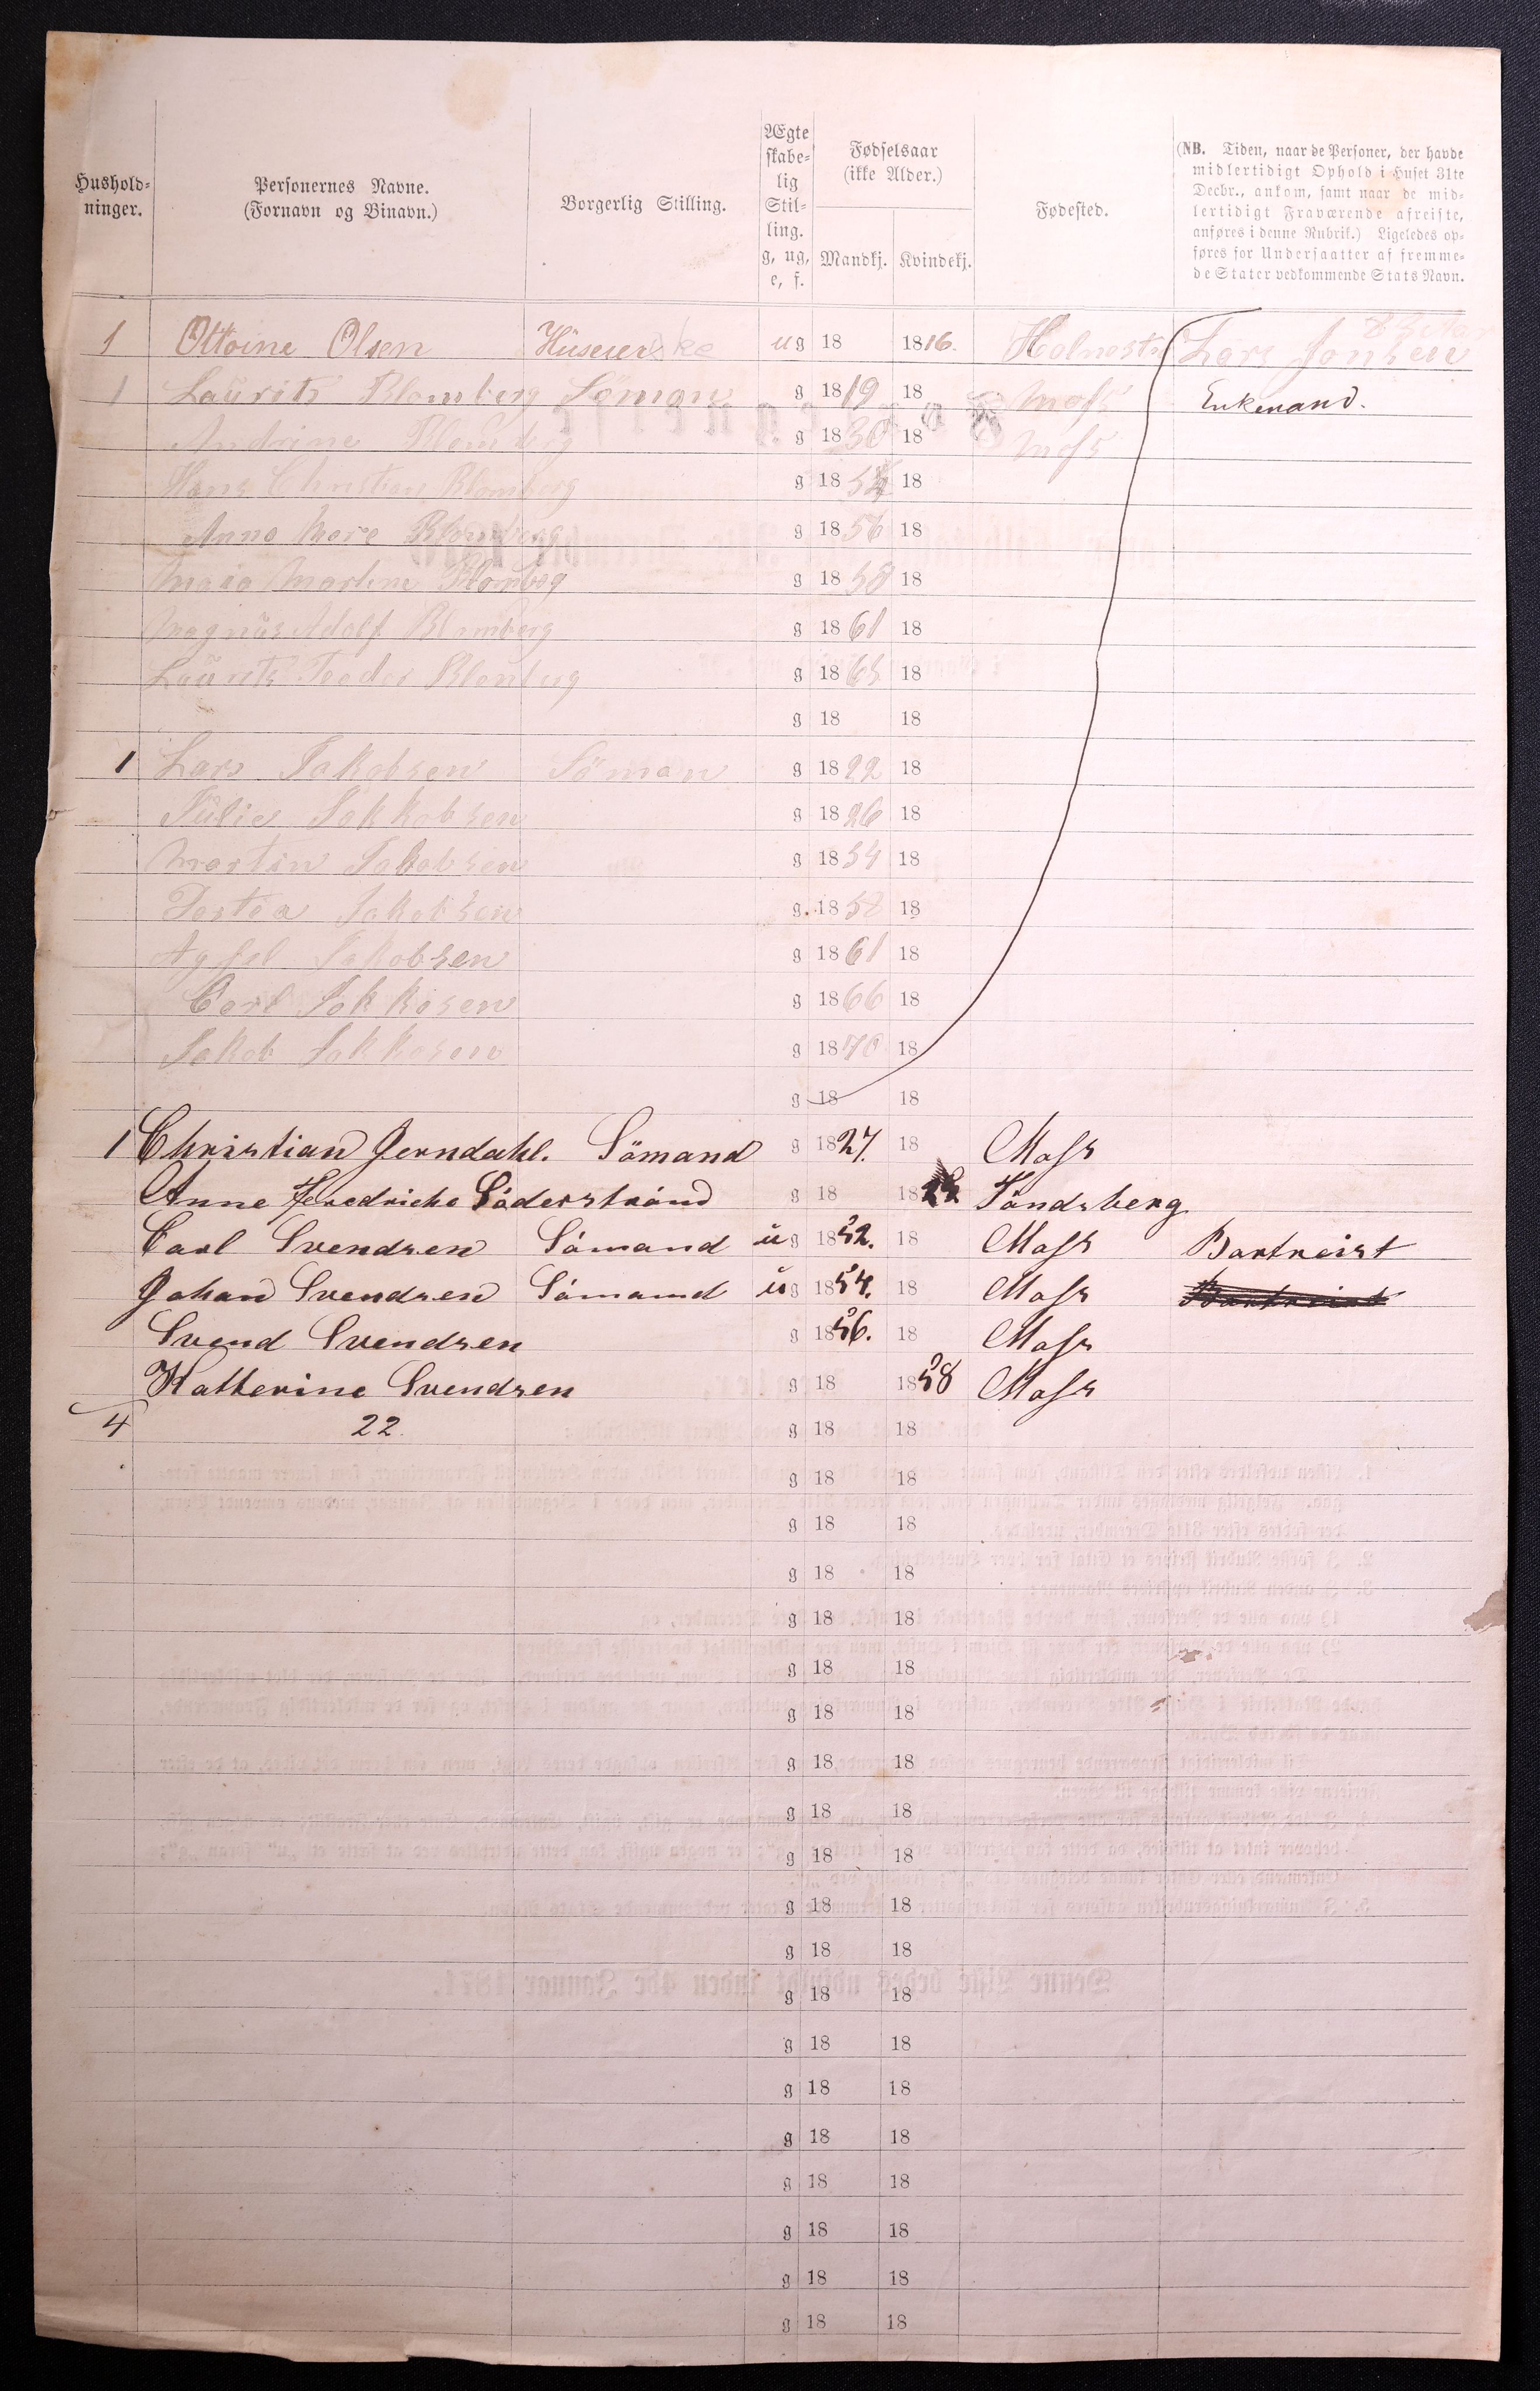 Hushold-
ninger.
Personernes Navne.
(Fornavn og Binavn.)
Borgerlig Stilling.
Ægte
skabe-
lig
Stil-
ling.
g, ug,
e, f.
Fødselsaar
(ikke Alder.)
Mandkj. Kvindekj.
Fødested.
(NB. Tiden, naar de Personer, der havde
midlertidigt Ophold i Huset 31te
Decbr., ankom, samt naar de mid-
lertidigt Fraværende afreiste,
anføres i denne Rubrik.) Ligeledes op-
føres for Undersaatter af fremme-
de Stater vedkommende Stats Navn.
1 Ottoine Olsen ug 18 1816. Lars Jonsen
1 Laurits Blomberg Söman g 1819 18 Moss Enkemand.
Andrine Blomberg g 1830 18 Moss
Hans Christian Blomberg g 18 18
Anna Mare Blomberg g 1856 18
Maria Martine Blomberg g 1858 18
Magnus Adolf Blomberg g 1861 18
Laurits Teodor Blomberg g 1865 18
g 18 18
1 Lars Jakobsen Söman g 1822 18
Julie Jakkobsen g 1826 18
Martin Jakobsen g 1854 18
Jakobsen g 1858 18
Jakobsen g 1861 18
Carl Jakkosen g 1866 18
Jakob Jakkosen g 1870 18
g 18 18
1 Christian Jerndahl. Sömand g 1827. 18 Moss
Anne Feredricke Söderstrånd g 18 18 Töndsberg
Carl Svendsen Sömand ug 1852. 18 Moss Bortreist
Johan Svendsen Sömand ug 1854. 18 Moss Bortreist
Svend Svendsen g 1856. 18 Moss
Katherine Svendsen g 18 1858 Moss
4 22. g 18 18
g 18 18
g 18 18
g 18 18
g 18 18
g 18 18
g 18 18
g 18 18
g 18 18
g 18 18
g 18 18
g 18 18
g 18 18
g 18 18
g 18 18
g 18 18
g 18 18
g 18 18
g 18 18
g 18 18